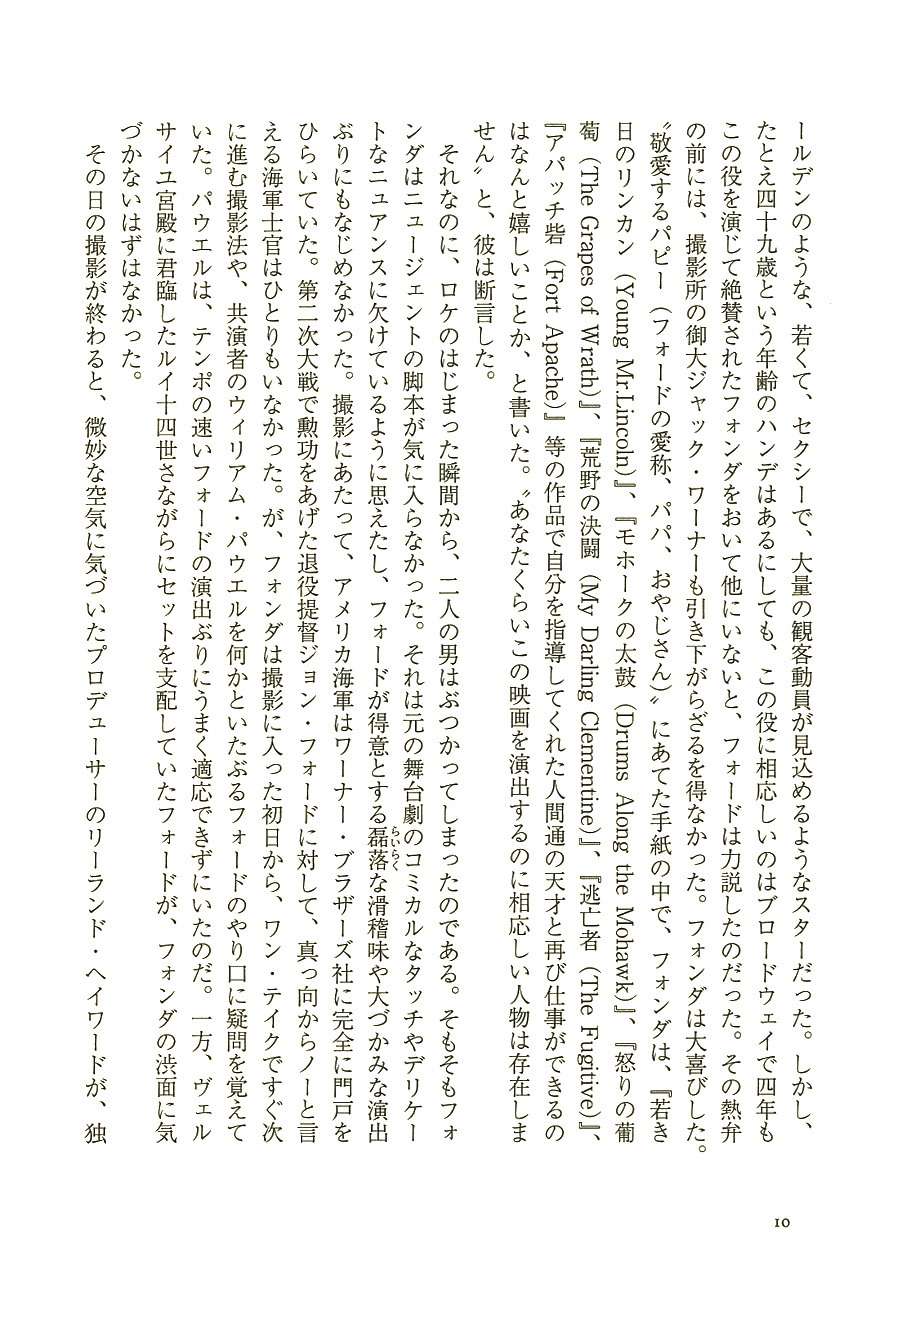 ールデンのような、若くて、セクシーで、大量の観客動員が見込めるようなスターだった。しかし、
たとえ四十九歳という年齢のハンデはあるにしても、この役に相応しいのはブロードウェイで四年も
この役を演じて絶賛されたフォンダをおいて他にいないと、フォードは力説したのだった。その熱弁
の前には、撮影所の御大ジャック・ワーナーも引き下がらざるを得なかった。フォンダは大喜びした。
〝敬愛するパピー（フォードの愛称、パパ、おやじさん）〟にあてた手紙の中で、フォンダは、『若き
日のリンカン（Young Mr.Lincoln）』、『モホークの太鼓（Drums Along the Mohawk）』、『怒りの葡
萄（The Grapes of Wrath）』、『荒野の決闘（My Darling Clementine）』、『逃亡者（The Fugitive）』、
『アパッチ砦（Fort Apache）』等の作品で自分を指導してくれた人間通の天才と再び仕事ができるの
はなんと嬉しいことか、と書いた。〝あなたくらいこの映画を演出するのに相応しい人物は存在しま
せん〟と、彼は断言した。
それなのに、ロケのはじまった瞬間から、二人の男はぶつかってしまったのである。そもそもフォ
ンダはニュージェントの脚本が気に入らなかった。それは元の舞台劇のコミカルなタッチやデリケー
トなニュアンスに欠けているように思えたし、フォードが得意とする磊落らいらくな滑稽味や大づかみな演出
ぶりにもなじめなかった。撮影にあたって、アメリカ海軍はワーナー・ブラザーズ社に完全に門戸を
ひらいていた。第二次大戦で勲功をあげた退役提督ジョン・フォードに対して、真っ向からノーと言
える海軍士官はひとりもいなかった。が、フォンダは撮影に入った初日から、ワン・テイクですぐ次
に進む撮影法や、共演者のウィリアム・パウエルを何かといたぶるフォードのやり口に疑問を覚えて
いた。パウエルは、テンポの速いフォードの演出ぶりにうまく適応できずにいたのだ。一方、ヴェル
サイユ宮殿に君臨したルイ十四世さながらにセットを支配していたフォードが、フォンダの渋面に気
づかないはずはなかった。
その日の撮影が終わると、微妙な空気に気づいたプロデューサーのリーランド・ヘイワードが、独
10